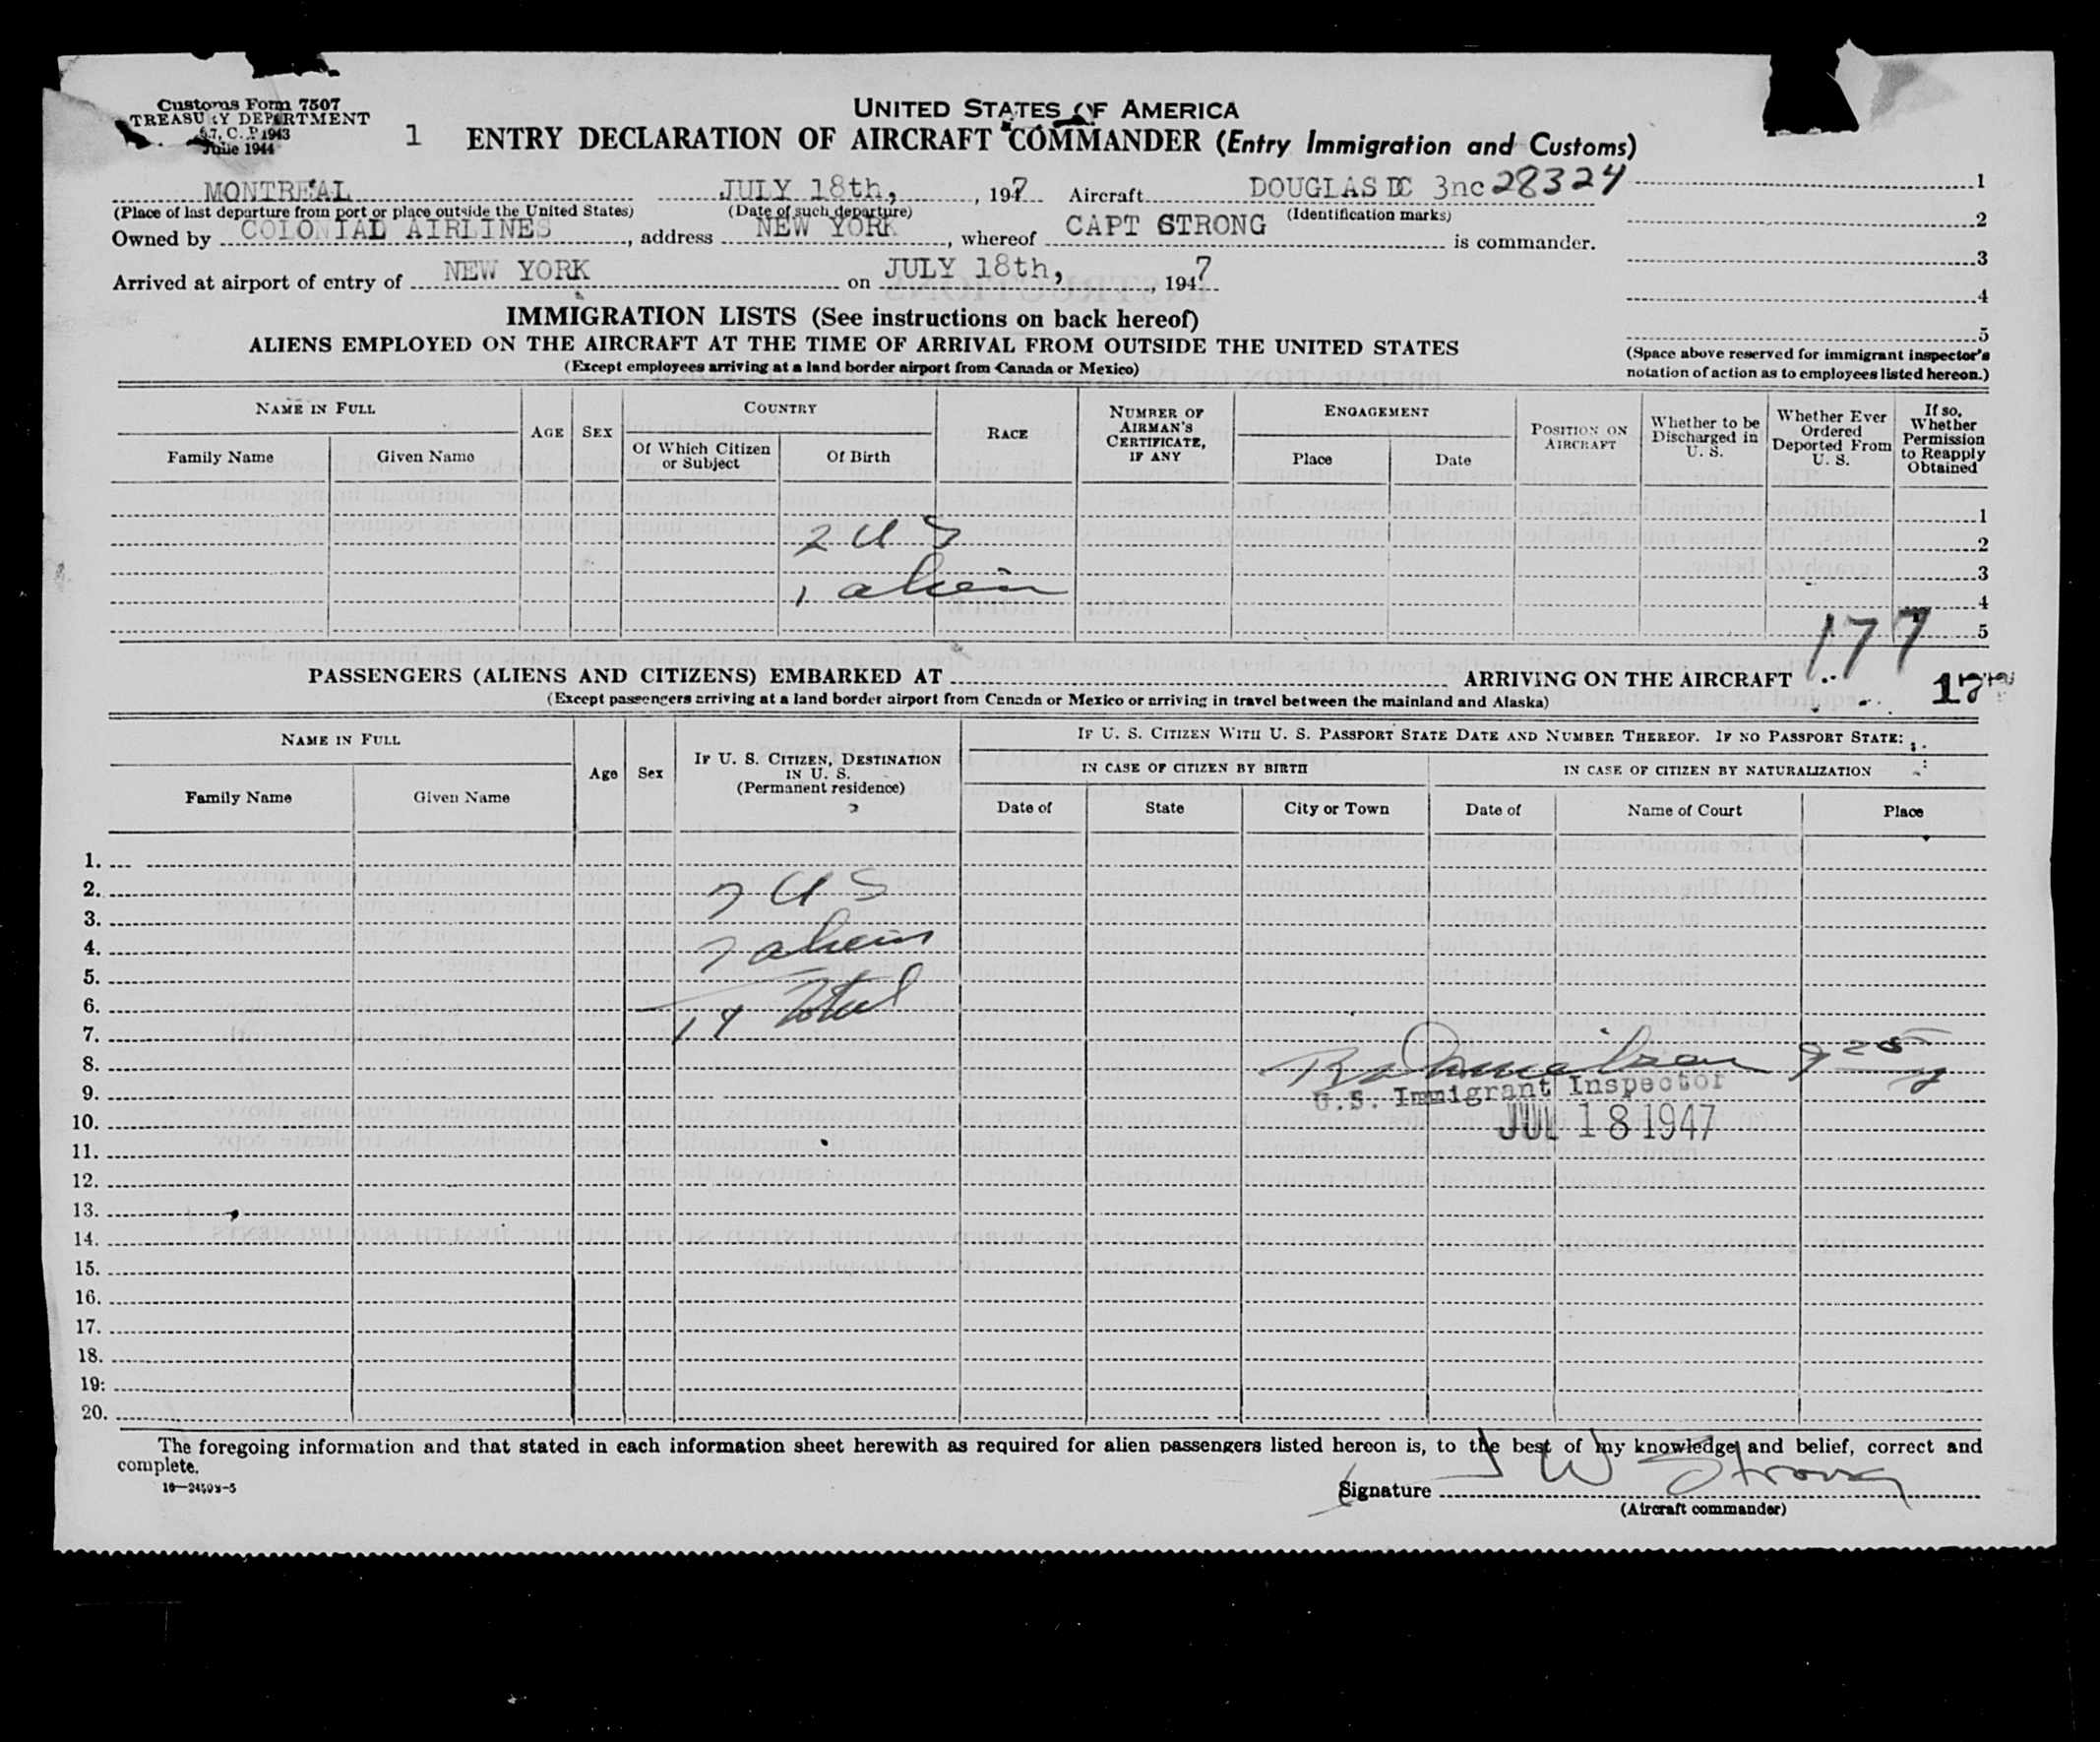 Customs Form 7507
TREASURY DEPARTMENT
C. P. 1943
June 1944
1
UNITED STATES OF AMERICA
ENTRY DECLARATION OF AIRCRAFT COMMANDER (Entry Immigration and Customs)
MONTREAL JULY 18th, , 1947 Aircraft DOUGLAS DC 3nc 28324
(Place of last departure from port or place outside the United States) (Date of such departure) (Identification marks)
Owned by COLONIAL AIRLINES, address NEW YORK, whereof CAPT STRONG is commander.
Arrived at airport of entry of NEW YORK on JULY 18th, , 1947
1
2
3
4
5
(Space above reserved for immigrant inspector's
notation of action as to employees listed hereon.)
IMMIGRATION LISTS (See instructions on back hereof)
ALIENS EMPLOYED ON THE AIRCRAFT AT THE TIME OF ARRIVAL FROM OUTSIDE THE UNITED STATES
(Except employees arriving at a land border airport from Canada or Mexico)
NAME IN FULL
Family Name Given Name
AGE SEX
COUNTRY
Of Which Citizen or Subject Of Birth
RACE
NUMBER OF AIRMAN'S CERTIFICATE, IF ANY
ENGAGEMENT
Place Date
POSITION ON AIRCRAFT
Whether to be Discharged in U. S.
Whether Ever Ordered Deported From U. S.
If so, Whether Permission to Reapply Obtained
1
2 US 2
3
1 alien 4
5
177
PASSENGERS (ALIENS AND CITIZENS) EMBARKED AT ARRIVING ON THE AIRCRAFT
(Except passengers arriving at a land border airport from Canada or Mexico or arriving in travel between the mainland and Alaska)
NAME IN FULL
Family Name Given Name
Age Sex
IF U. S. CITIZEN, DESTINATION IN U. S.
(Permanent residence)
IF U. S. CITIZEN WITH U. S. PASSPORT STATE DATE AND NUMBER THEREOF. IF NO PASSPORT STATE:
IN CASE OF CITIZEN BY BIRTH IN CASE OF CITIZEN BY NATURALIZATION
Date of State City or Town Date of Name of Court Place
1.
2. 7 US
3.
4. 7 aliens
5.
6.
7. 14 Total
8.
9. U.S. Immigrant Inspector
10. JUL 18 1947
11.
12.
13.
14.
15.
16.
17.
18.
19.
20.
The foregoing information and that stated in each information sheet herewith as required for alien passengers listed hereon is, to the best of my knowledge and belief, correct and
complete.
Signature J W Strong
(Aircraft commander)